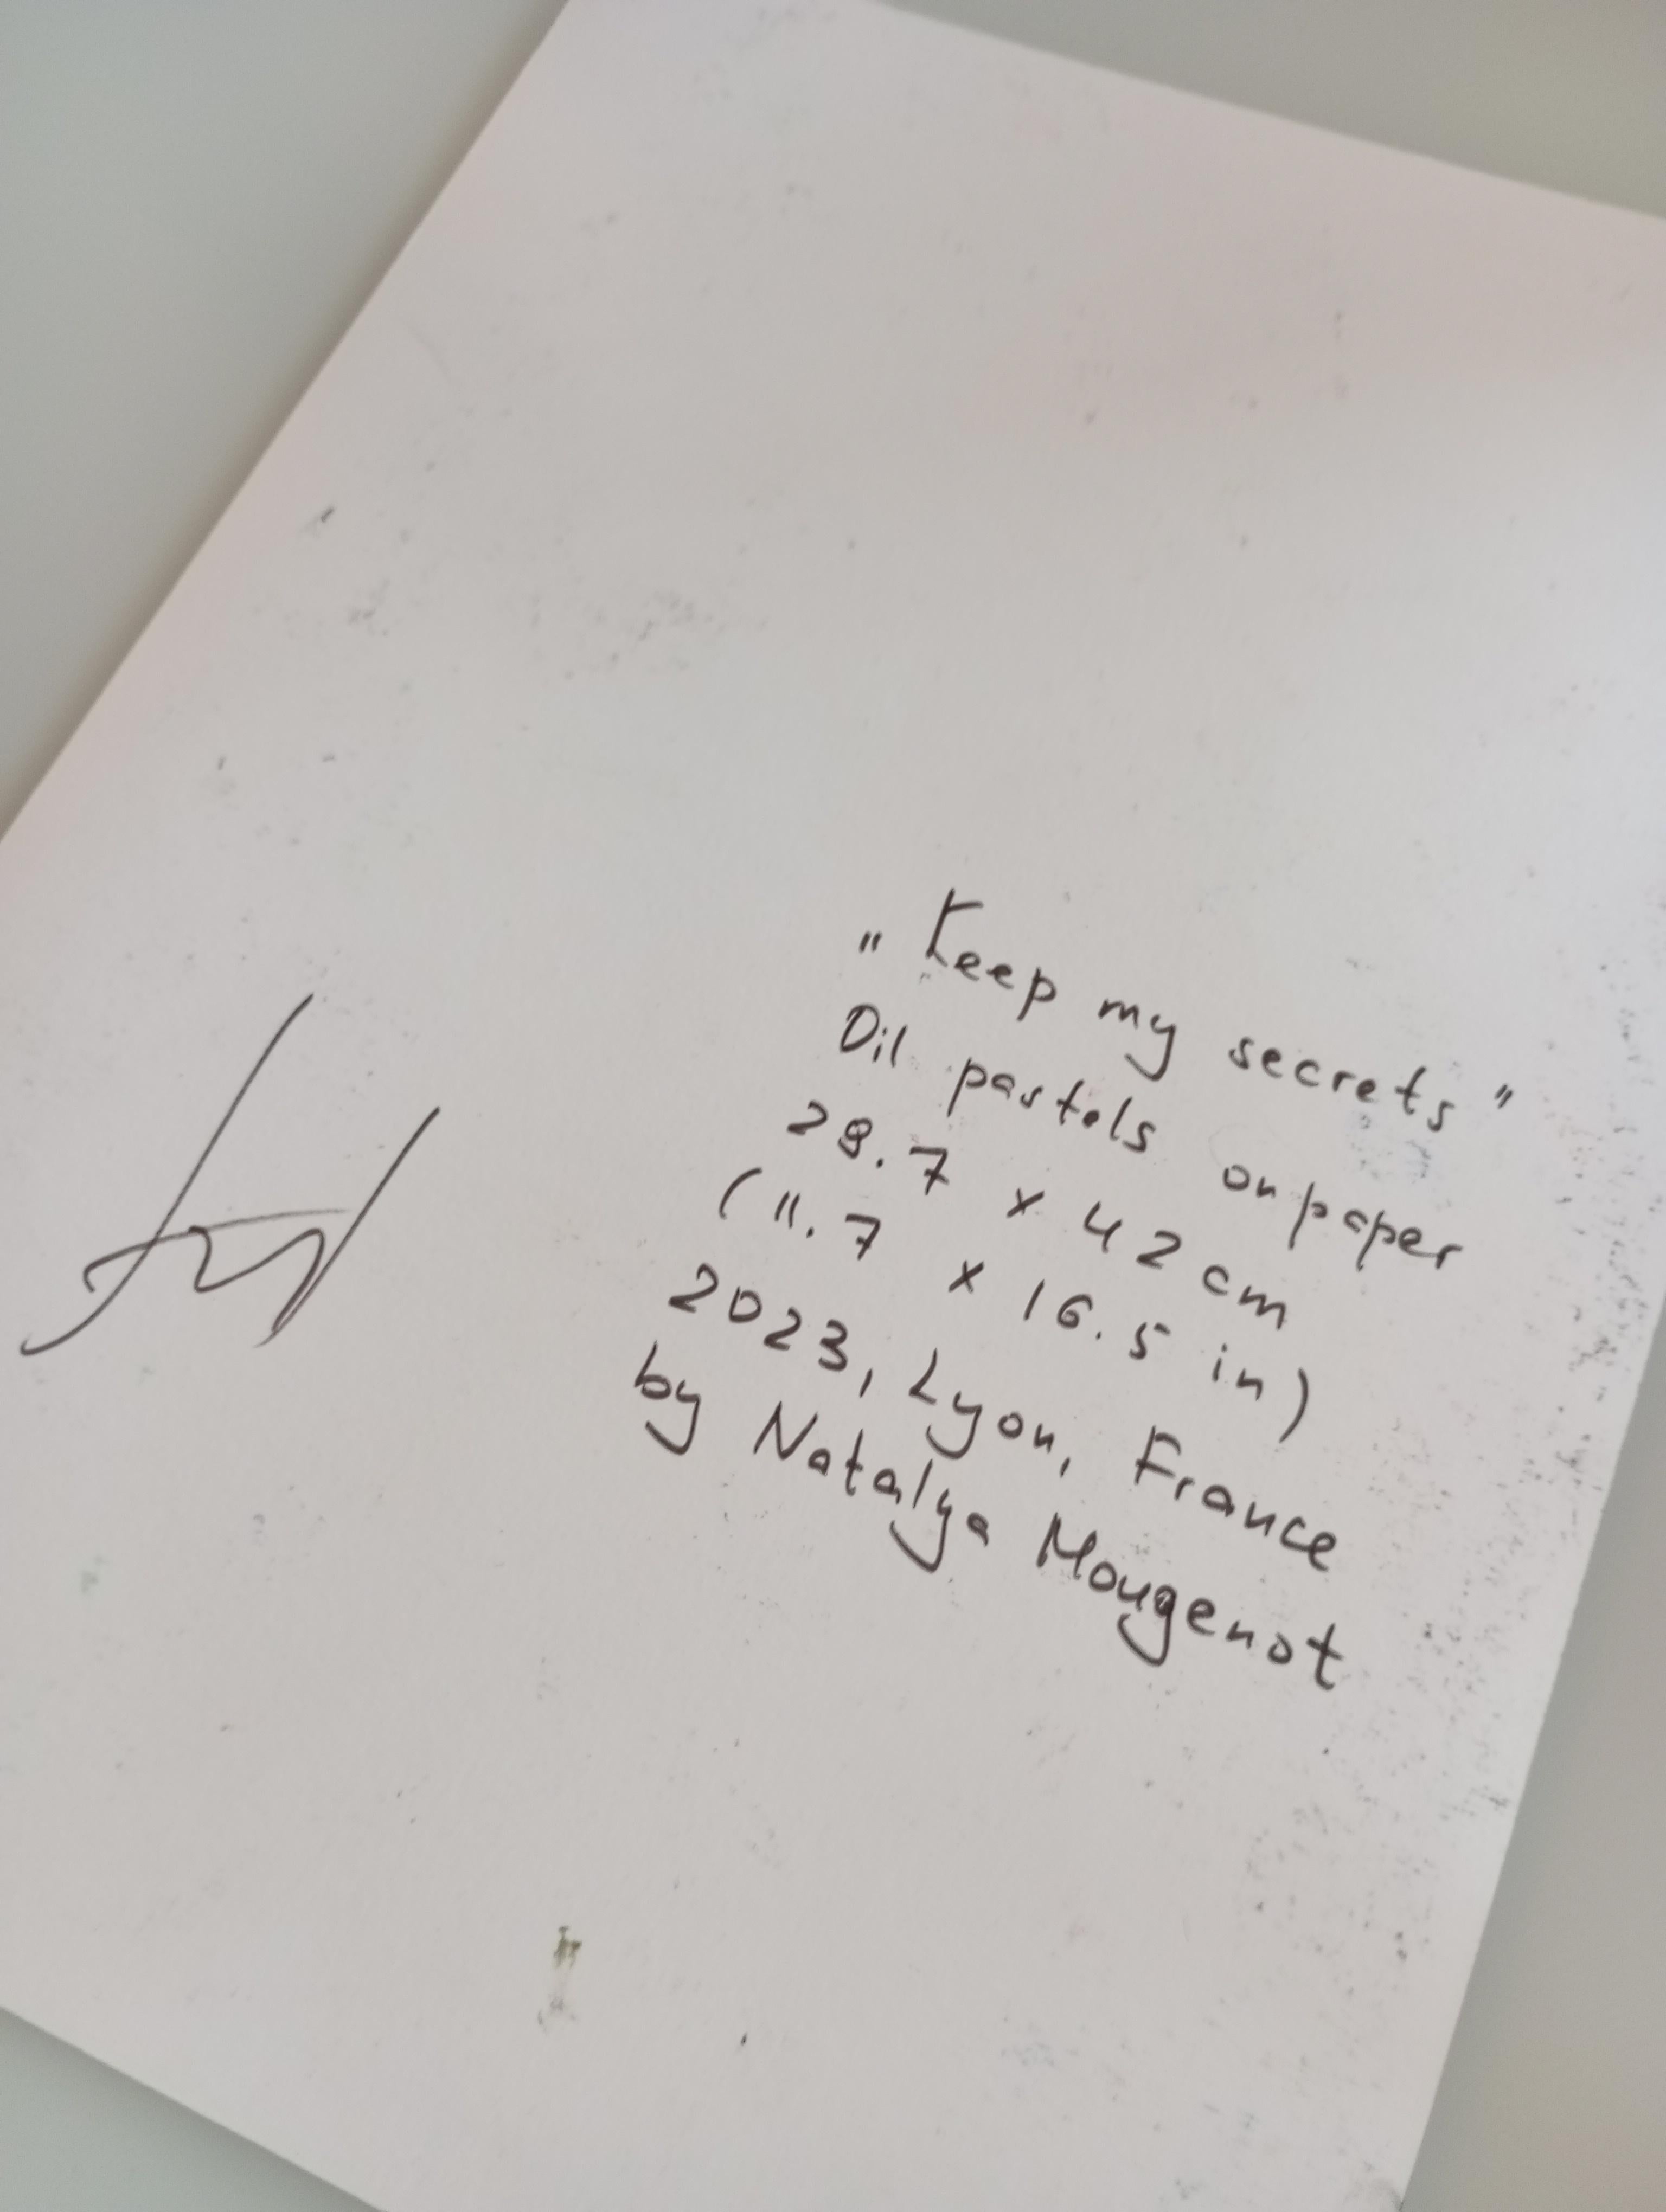 „Keep my secrets"
Oil pastels on paper
29.7 x 42 cm
(11.7 x 16.5 in)
2023, Lyon, France
by Natalya Mougenot